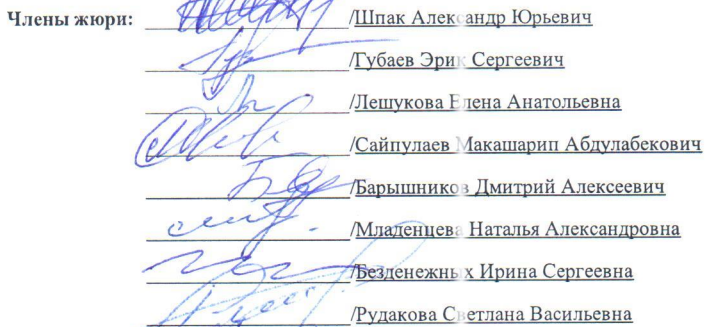 Члены жюри: /Шпак Александр Юрьевич
/Губаев Эрик Сергеевич
/Лешукова Елена Анатольевна
/Сайпулаев Макашарип Абдулабекович
/Барышников Дмитрий Алексеевич
/Младенцева Наталья Александровна
/Безденежных Ирина Сергеевна
/Рудакова Светлана Васильевна